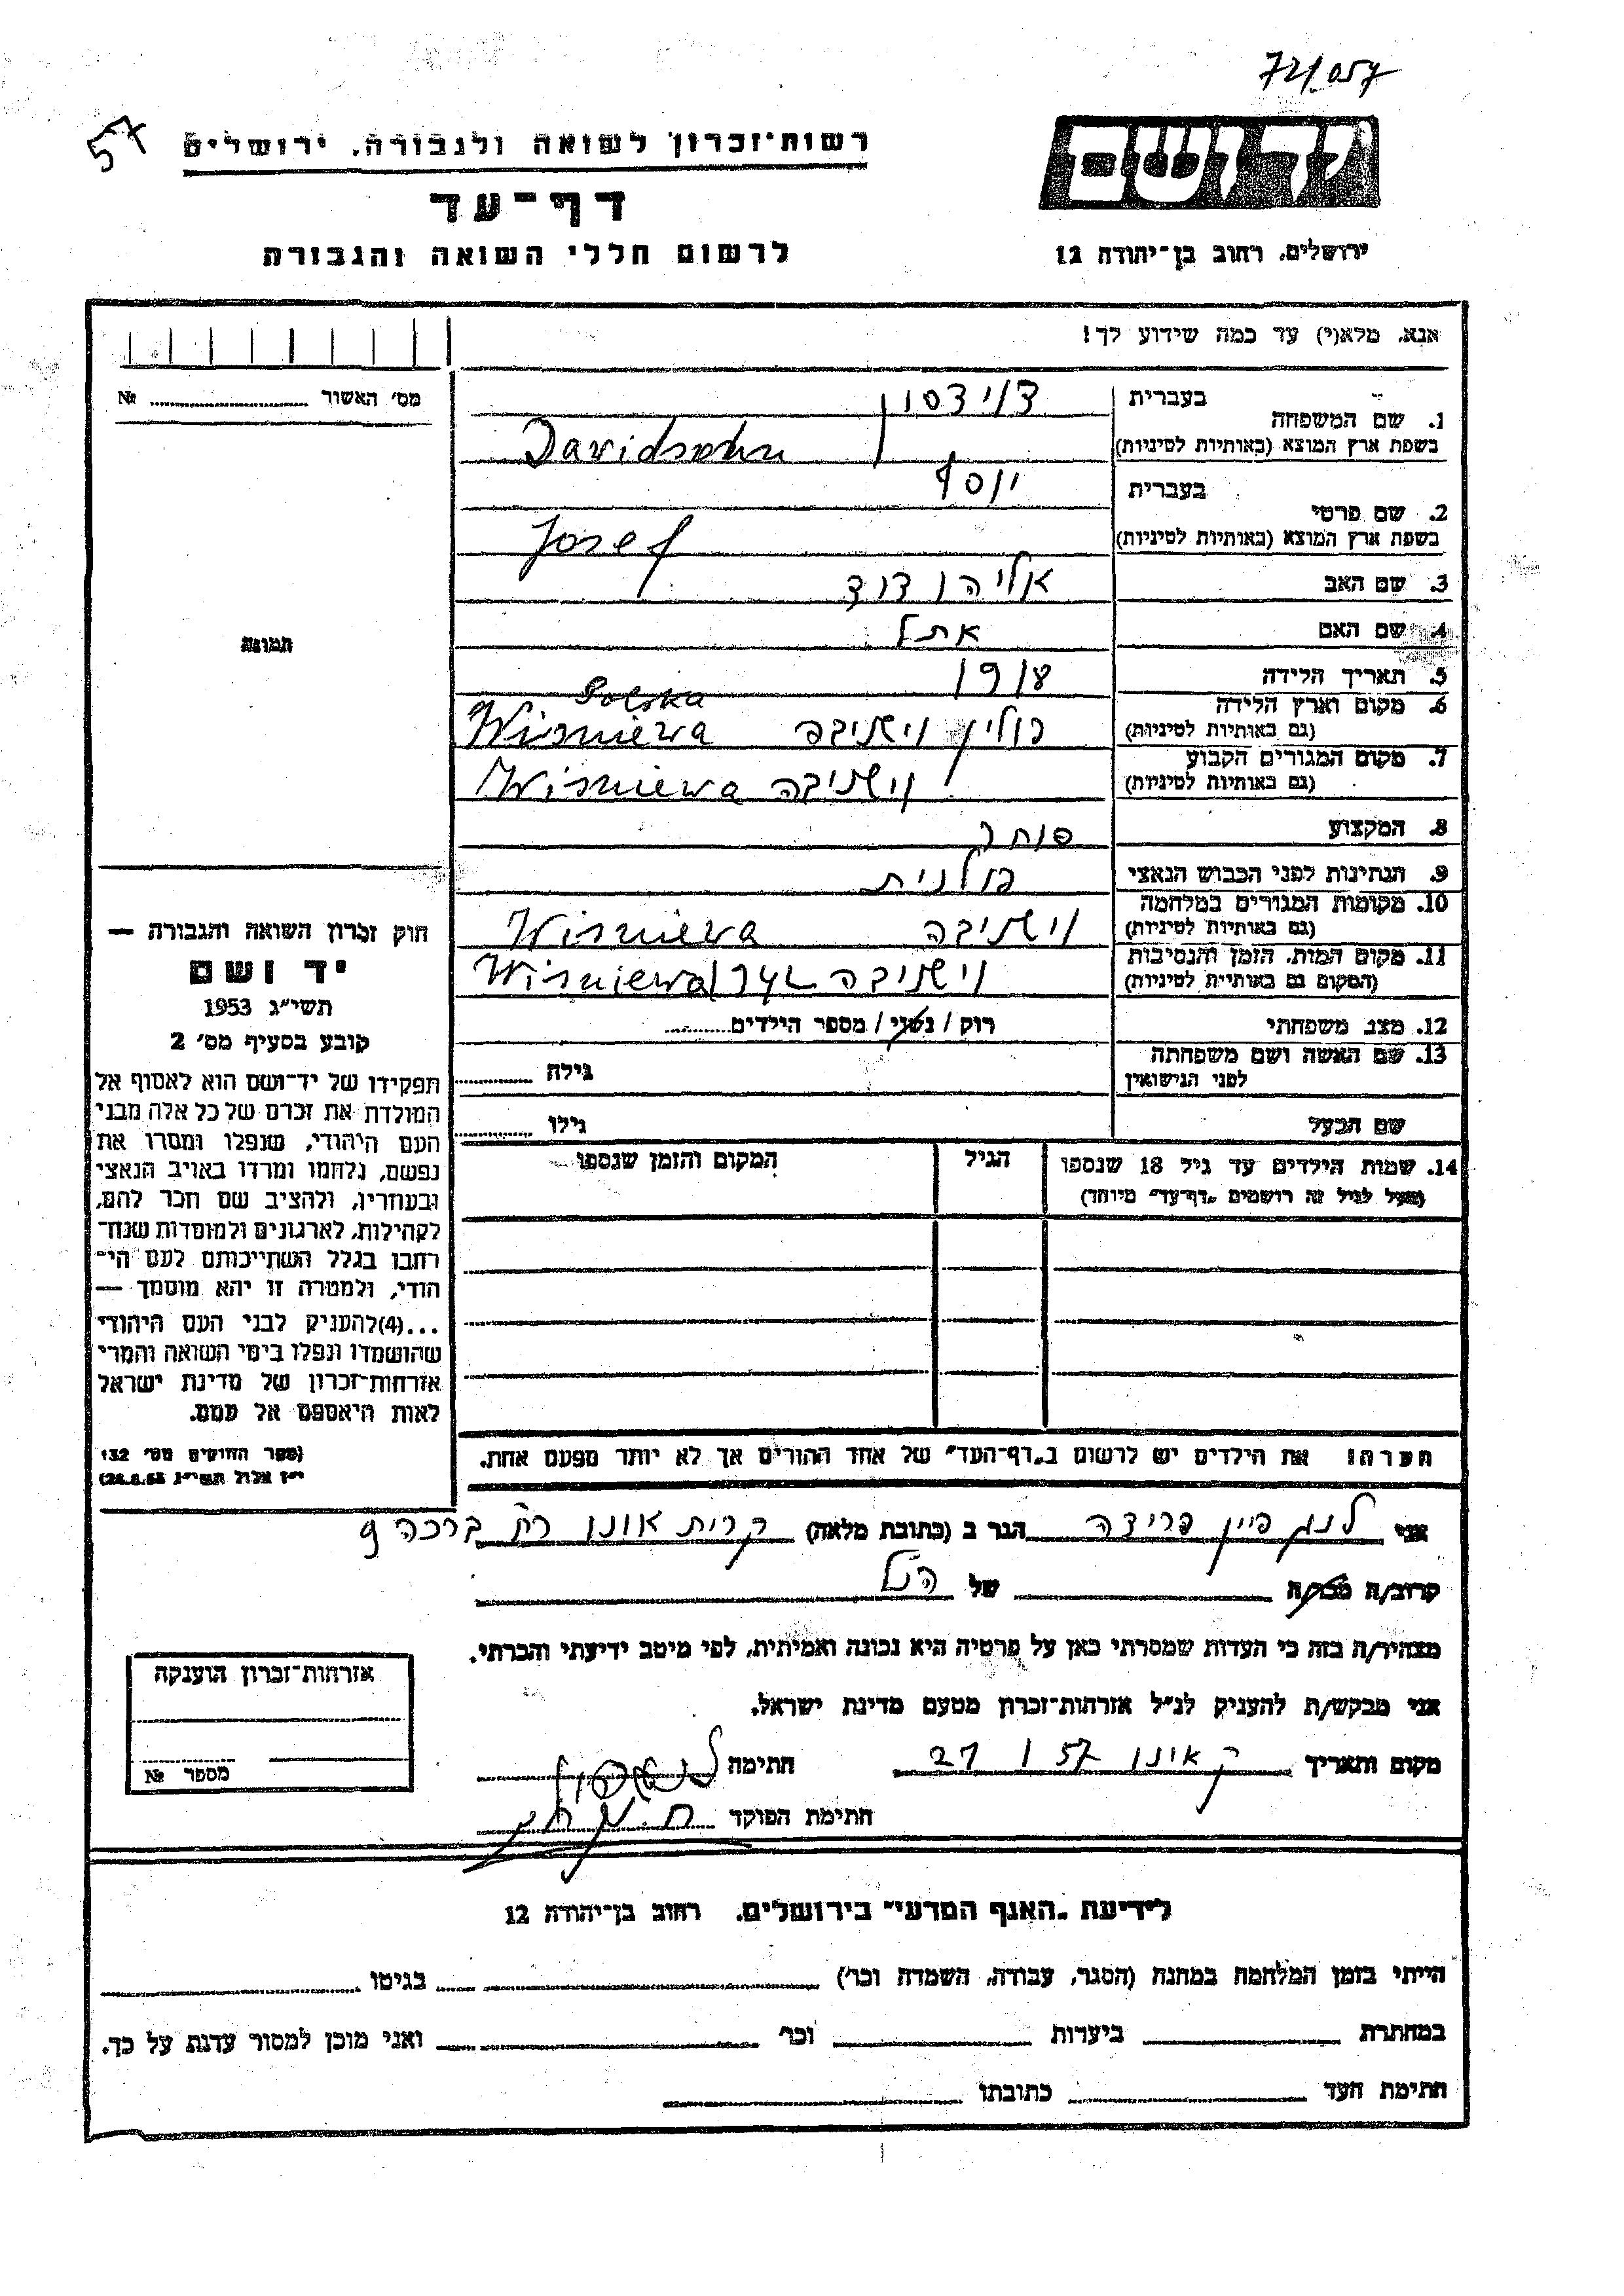 72/057
57
רשות־זכרון לשואה ולגבורה, ירושלים
יד ושם
דף־עד
לרשום חללי השואה והגבורה
ירושלים, רחוב בן־יהודה 12
אנא, מלא(י) עד כמה שידוע לך!
מס׳ האשור № 
1. שם המשפחה בעברית דוידסון
בשפת ארץ המוצא (באותיות לטיניות) Davidsohn
2. שם פרטי בעברית יוסף
בשפת ארץ המוצא (באותיות לטיניות) Josef
3. שם האב אליהו דוד
4. שם האם אתל
תמונה
5. תאריך הלידה 1918
6. מקום וארץ הלידה (גם באותיות לטיניות) פולין וישניבה Wiszniewa Polska
7. מקום המגורים הקבוע (גם באותיות לטיניות) וישניבה Wiszniewa
8. המקצוע סוחר
9. הנתינות לפני הכבוש הנאצי פולנית
10. מקומות המגורים במלחמה (גם באותיות לטיניות) וישניבה Wiszniewa
11. מקום המות, הזמן והנסיבות (המקום גם באותיות לטיניות) וישניבה Wiszniewa
12. מצב משפחתי רוק / נשוי / מספר הילדים
13. שם האשה ושם משפחתה לפני הנישואין גילה
שם הבעל גילו
14. שמות הילדים עד גיל 18 שנספו הגיל המקום והזמן שנספו
(מעל לגיל זה רושמים „דף־עד" מיוחד)
חוק זכרון השואה והגבורה —
יד ושם
תשי״ג 1953
קובע בסעיף מס׳ 2
תפקידו של יד־ושם הוא לאסוף אל
המולדת את זכרם של כל אלה מבני
העם היהודי, שנפלו ומסרו את
נפשם, נלחמו ומרדו באויב הנאצי
ובעוזריו, ולהציב שם וזכר להם,
לקהילות, לארגונים ולמוסדות שנח־
רבו בגלל השתייכותם לעם הי־
הודי, ולמטרה זו יהא מוסמך —
...(4)להעניק לבני העם היהודי
שהושמדו ונפלו בימי השואה והמרי
אזרחות־זכרון של מדינת ישראל
לאות היאספם אל עמם.
(ספר החוקים מס׳ 132
י״ז אלול תשי״ג 28.8.53)
הערה! את הילדים יש לרשום ב„דף־העד" של אחד ההורים אך לא יותר מפעם אחת.
אני פיין פרידה הגר ב (כתובת מלאה) קרית אונו רח ברכה 9
קרוב/ה מכר/ה של הנ״ל
מצהיר/ה בזה כי העדות שמסרתי כאן על פרטיה היא נכונה ואמיתית, לפי מיטב ידיעתי והכרתי.
אני מבקש/ת להעניק לנ״ל אזרחות־זכרון מטעם מדינת ישראל.
מקום ותאריך ק אונו 27 1 57 חתימה
חתימת הפוקד
אזרחות־זכרון הוענקה
מספר №
לידיעת „האגף המדעי" בירושלים, רחוב בן־יהודה 12
הייתי בזמן המלחמה במחנה (הסגר, עבודה, השמדה וכו׳) בגיטו
במחתרת ביערות וכו׳ ואני מוכן למסור עדות על כך.
חתימת העד כתובתו